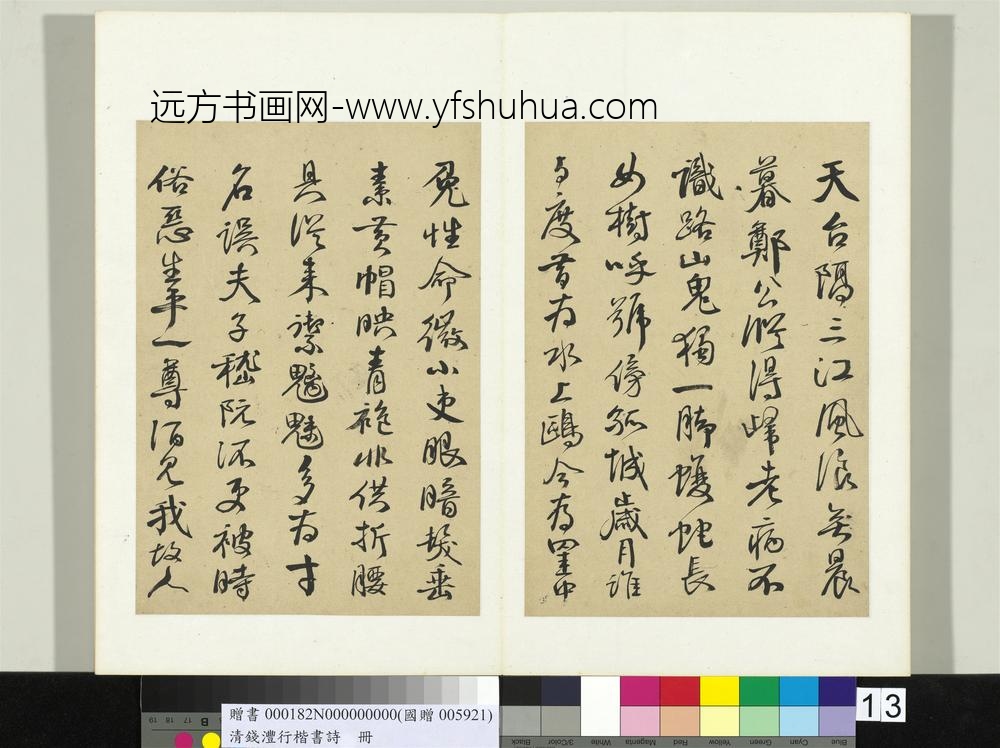 远方书画网-www.yfshuhua.com
天台隔三江風浪無晨
暮鄭公縱得歸老病不
識路山鬼獨一腳蝮蛇長
如樹呼號傍孤城歲月誰
與度昔为水上鷗今為罝中
兔性命微小吏眼暗髮垂
素黃帽映青袍非供折腰
具從来禦魑魅多为才
名誤夫子嵇阮流更被時
俗惡生平一尊酒見我故人
13
19 18 17 16 B
Black
3/Color
White
Magenta
Red
Yellow
Green
Cyan
Blue
贈書 000182N000000000(國贈 005921)
清錢灃行楷書詩 冊